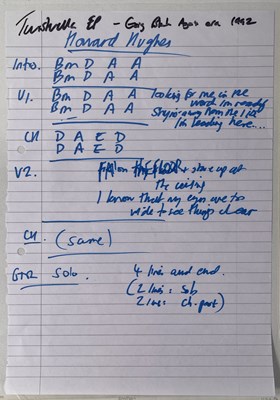 Twisterella EP - Going Blank Again era 1992
Howard Hughes
Intro. Bm D A A
Bm D A A
V1. Bm D A A Looking for me, in the
Bm D A A words I'm reading
Staying away from the life
I'm leading here...
CH D A E D
D A E D
V2. on the FLOOR + stare up at
the ceiling
I know that my eyes are too
wide to see things clear
CH. (same)
GTR Solo. 4 lines and end.
(2 lines: solo
2 lines: ch. part)